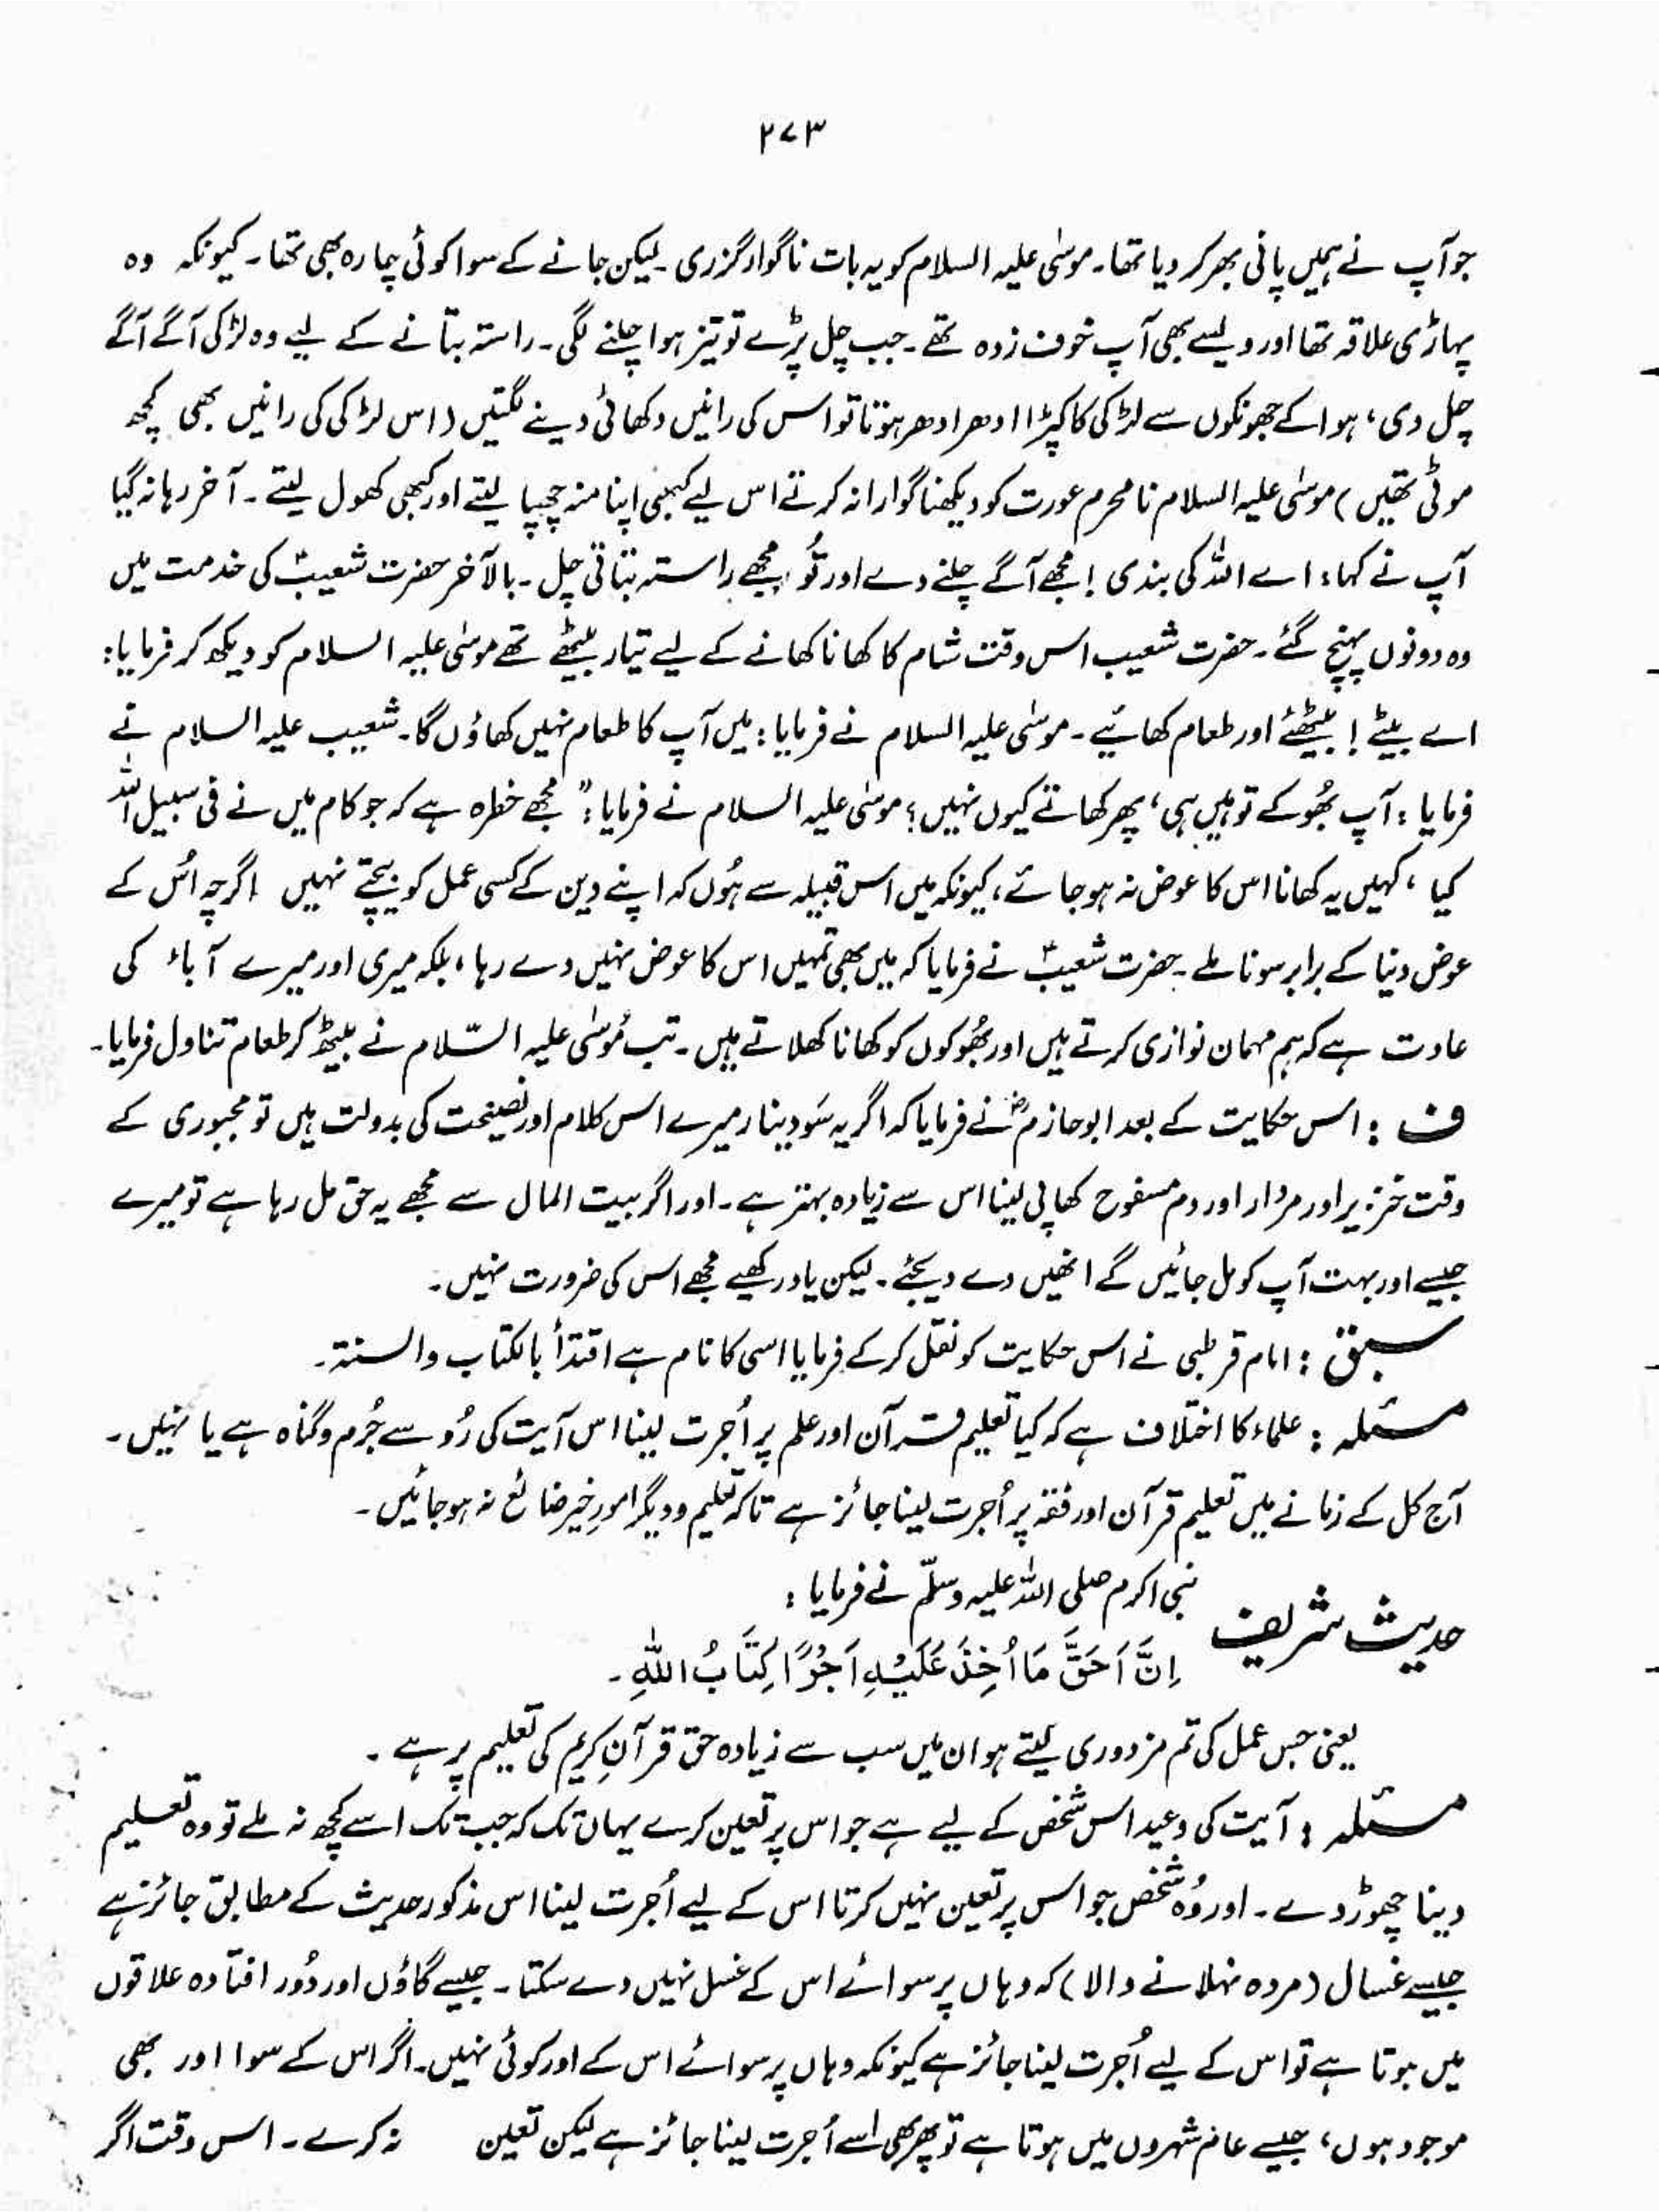 ۲۷۳
جو آپ نے ہمیں پانی بھر کر دیا تھا۔ موسٰی علیہ السلام کو یہ بات ناگوار گزری۔ لیکن جانے کے سوا کوئی چارہ بھی تھا۔ کیونکہ وہ
پہاڑی علاقہ تھا اور ویسے بھی آپ خوف زدہ تھے۔ جب چل پڑے تو تیز ہوا چلنے لگی۔ راستہ بتانے کے لیے وہ لڑکی آگے آگے
چل دی، ہوا کے جھونکوں سے لڑکی کا کپڑا ادھر ادھر ہوتا تو اس کی رانیں دکھائی دینے لگتیں (اس لڑکی کی رانیں بھی کچھ
موٹی تھیں) موسٰی علیہ السلام نامحرم عورت کو دیکھنا گوارا نہ کرتے اس لیے کبھی اپنا منہ چھپا لیتے اور کبھی کھول لیتے۔ آخر رہا نہ گیا
آپ نے کہا: اے اللہ کی بندی! مجھے آگے چلنے دے اور تُو پیچھے راستہ بتاتی چل۔ بالآخر حضرت شعیبؑ کی خدمت میں
وہ دونوں پہنچ گئے۔ حضرت شعیب اس وقت شام کا کھانا کھانے کے لیے تیار بیٹھے تھے موسٰی علیہ السلام کو دیکھ کر فرمایا:
اے بیٹے! بیٹھئے اور طعام کھائیے۔ موسٰی علیہ السلام نے فرمایا: میں آپ کا طعام نہیں کھاؤں گا۔ شعیب علیہ السلام نے
فرمایا: آپ بُھوکے تو ہیں ہی، پھر کھاتے کیوں نہیں؟ موسٰی علیہ السلام نے فرمایا:" مجھے خطرہ ہے کہ جو کام میں نے فی سبیل اللہ
کیا، کہیں یہ کھانا اس کا عوض نہ ہو جائے، کیونکہ میں اس قبیلہ سے ہُوں کہ اپنے دین کے کسی عمل کو بیچتے نہیں اگرچہ اُس کے
عوض دنیا کے برابر سونا ملے۔ حضرت شعیبؑ نے فرمایا کہ میں بھی تمہیں اس کا عوض نہیں دے رہا، بلکہ میری اور میرے آباء کی
عادت ہے کہ ہم مہمان نوازی کرتے ہیں اور بُھوکوں کو کھانا کھلاتے ہیں۔ تب مُوسٰی علیہ السّلام نے بیٹھ کر طعام تناول فرمایا۔
ف : اس حکایت کے بعد ابوحازمؓ نے فرمایا کہ اگر یہ سَو دینار میرے اس کلام اور نصیحت کی بدولت ہیں تو مجبوری کے
وقت خنزیر اور مردار اور دمِ مسفوح کھا پی لینا اس سے زیادہ بہتر ہے۔ اور اگر بیت المال سے مجھے یہ حق مل رہا ہے تو میرے
جیسے اور بہت آپ کو مل جائیں گے انھیں دے دیجئے۔ لیکن یاد رکھیے مجھے اس کی ضرورت نہیں۔
سبق : امام قرطبی نے اس حکایت کو نقل کر کے فرمایا اسی کا نام ہے اقتدأ بالکتاب والسنۃ۔
مسئلہ : علماء کا اختلاف ہے کہ کیا تعلیم قرآن اور علم پر اُجرت لینا اس آیت کی رُو سے جُرم و گناہ ہے یا نہیں۔
آج کل کے زمانے میں تعلیم قرآن اور فقہ پر اُجرت لینا جائز ہے تاکہ تعلیم و دیگر امورِ خیر ضائع نہ ہو جائیں۔
نبی اکرم صلی اللہ علیہ وسلّم نے فرمایا:
حدیث شریف
اِنَّ اَحَقَّ مَا اُخِذَ عَلَيْهِ اَجْرًا كِتَابُ اللهِ۔
یعنی جس عمل کی تم مزدوری لیتے ہو ان میں سب سے زیادہ حق قرآنِ کریم کی تعلیم پر ہے۔
مسئلہ : آیت کی وعید اس شخص کے لیے ہے جو اس پر تعین کرے یہاں تک کہ جب تک اسے کچھ نہ ملے تو وہ تعلیم
دینا چھوڑ دے۔ اور وُہ شخص جو اس پر تعین نہیں کرتا اس کے لیے اُجرت لینا اس مذکور حدیث کے مطابق جائز ہے
جیسے غسال (مردہ نہلانے والا) کہ وہاں پر سوائے اس کے غسل نہیں دے سکتا۔ جیسے گاؤں اور دُور افتادہ علاقوں
میں ہوتا ہے تو اس کے لیے اُجرت لینا جائز ہے کیونکہ وہاں پر سوائے اس کے اور کوئی نہیں۔ اگر اس کے سوا اور بھی
موجود ہوں، جیسے عام شہروں میں ہوتا ہے تو پھر بھی اسے اُجرت لینا جائز ہے لیکن تعین نہ کرے۔ اس وقت اگر